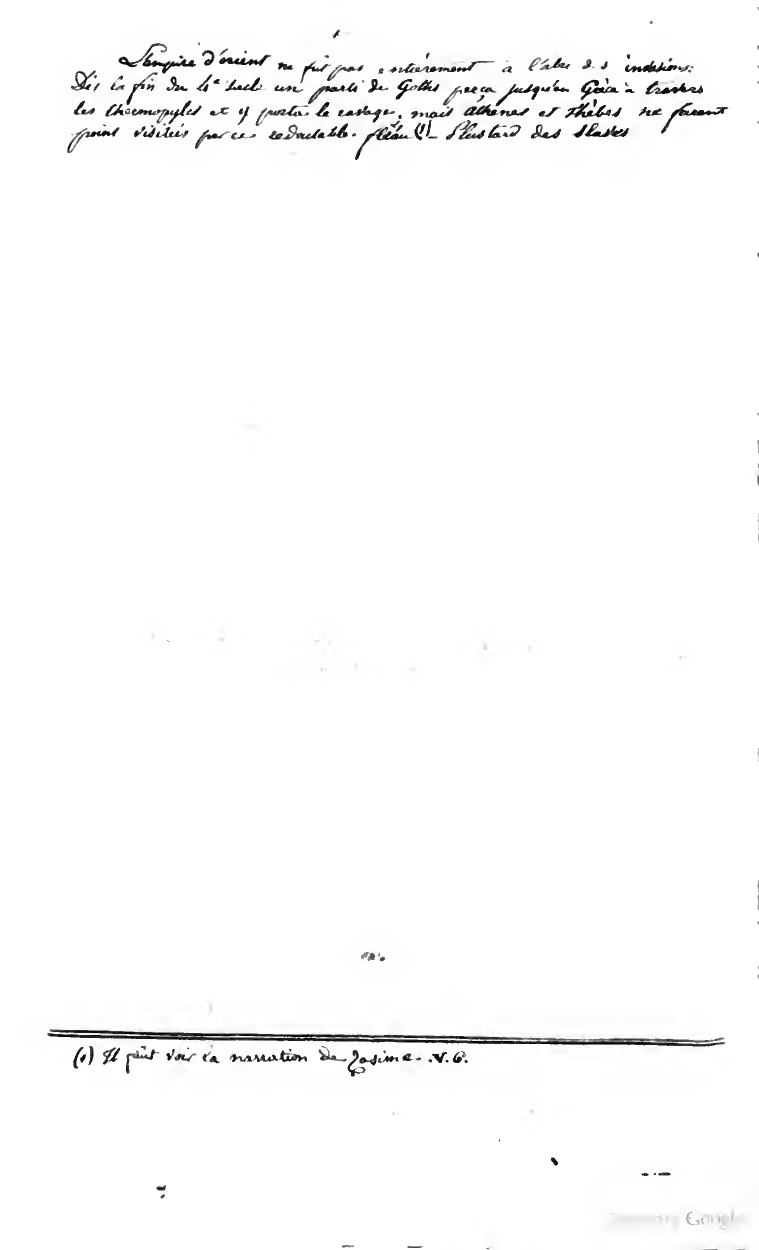 L'Empire d'orient ne fut pas entièrement à l'abri des invasions:
Dès la fin du 4e siècle un parti de Goths perça jusqu'en Grèce à travers
les thermopyles et y porta le ravage, mais Athènes et Thèbes ne furent
point visitées par ce redoutable fléau (1) – Plustard des slaves
(1) Il peut voir la narration de Zosime. V. 6.
Google